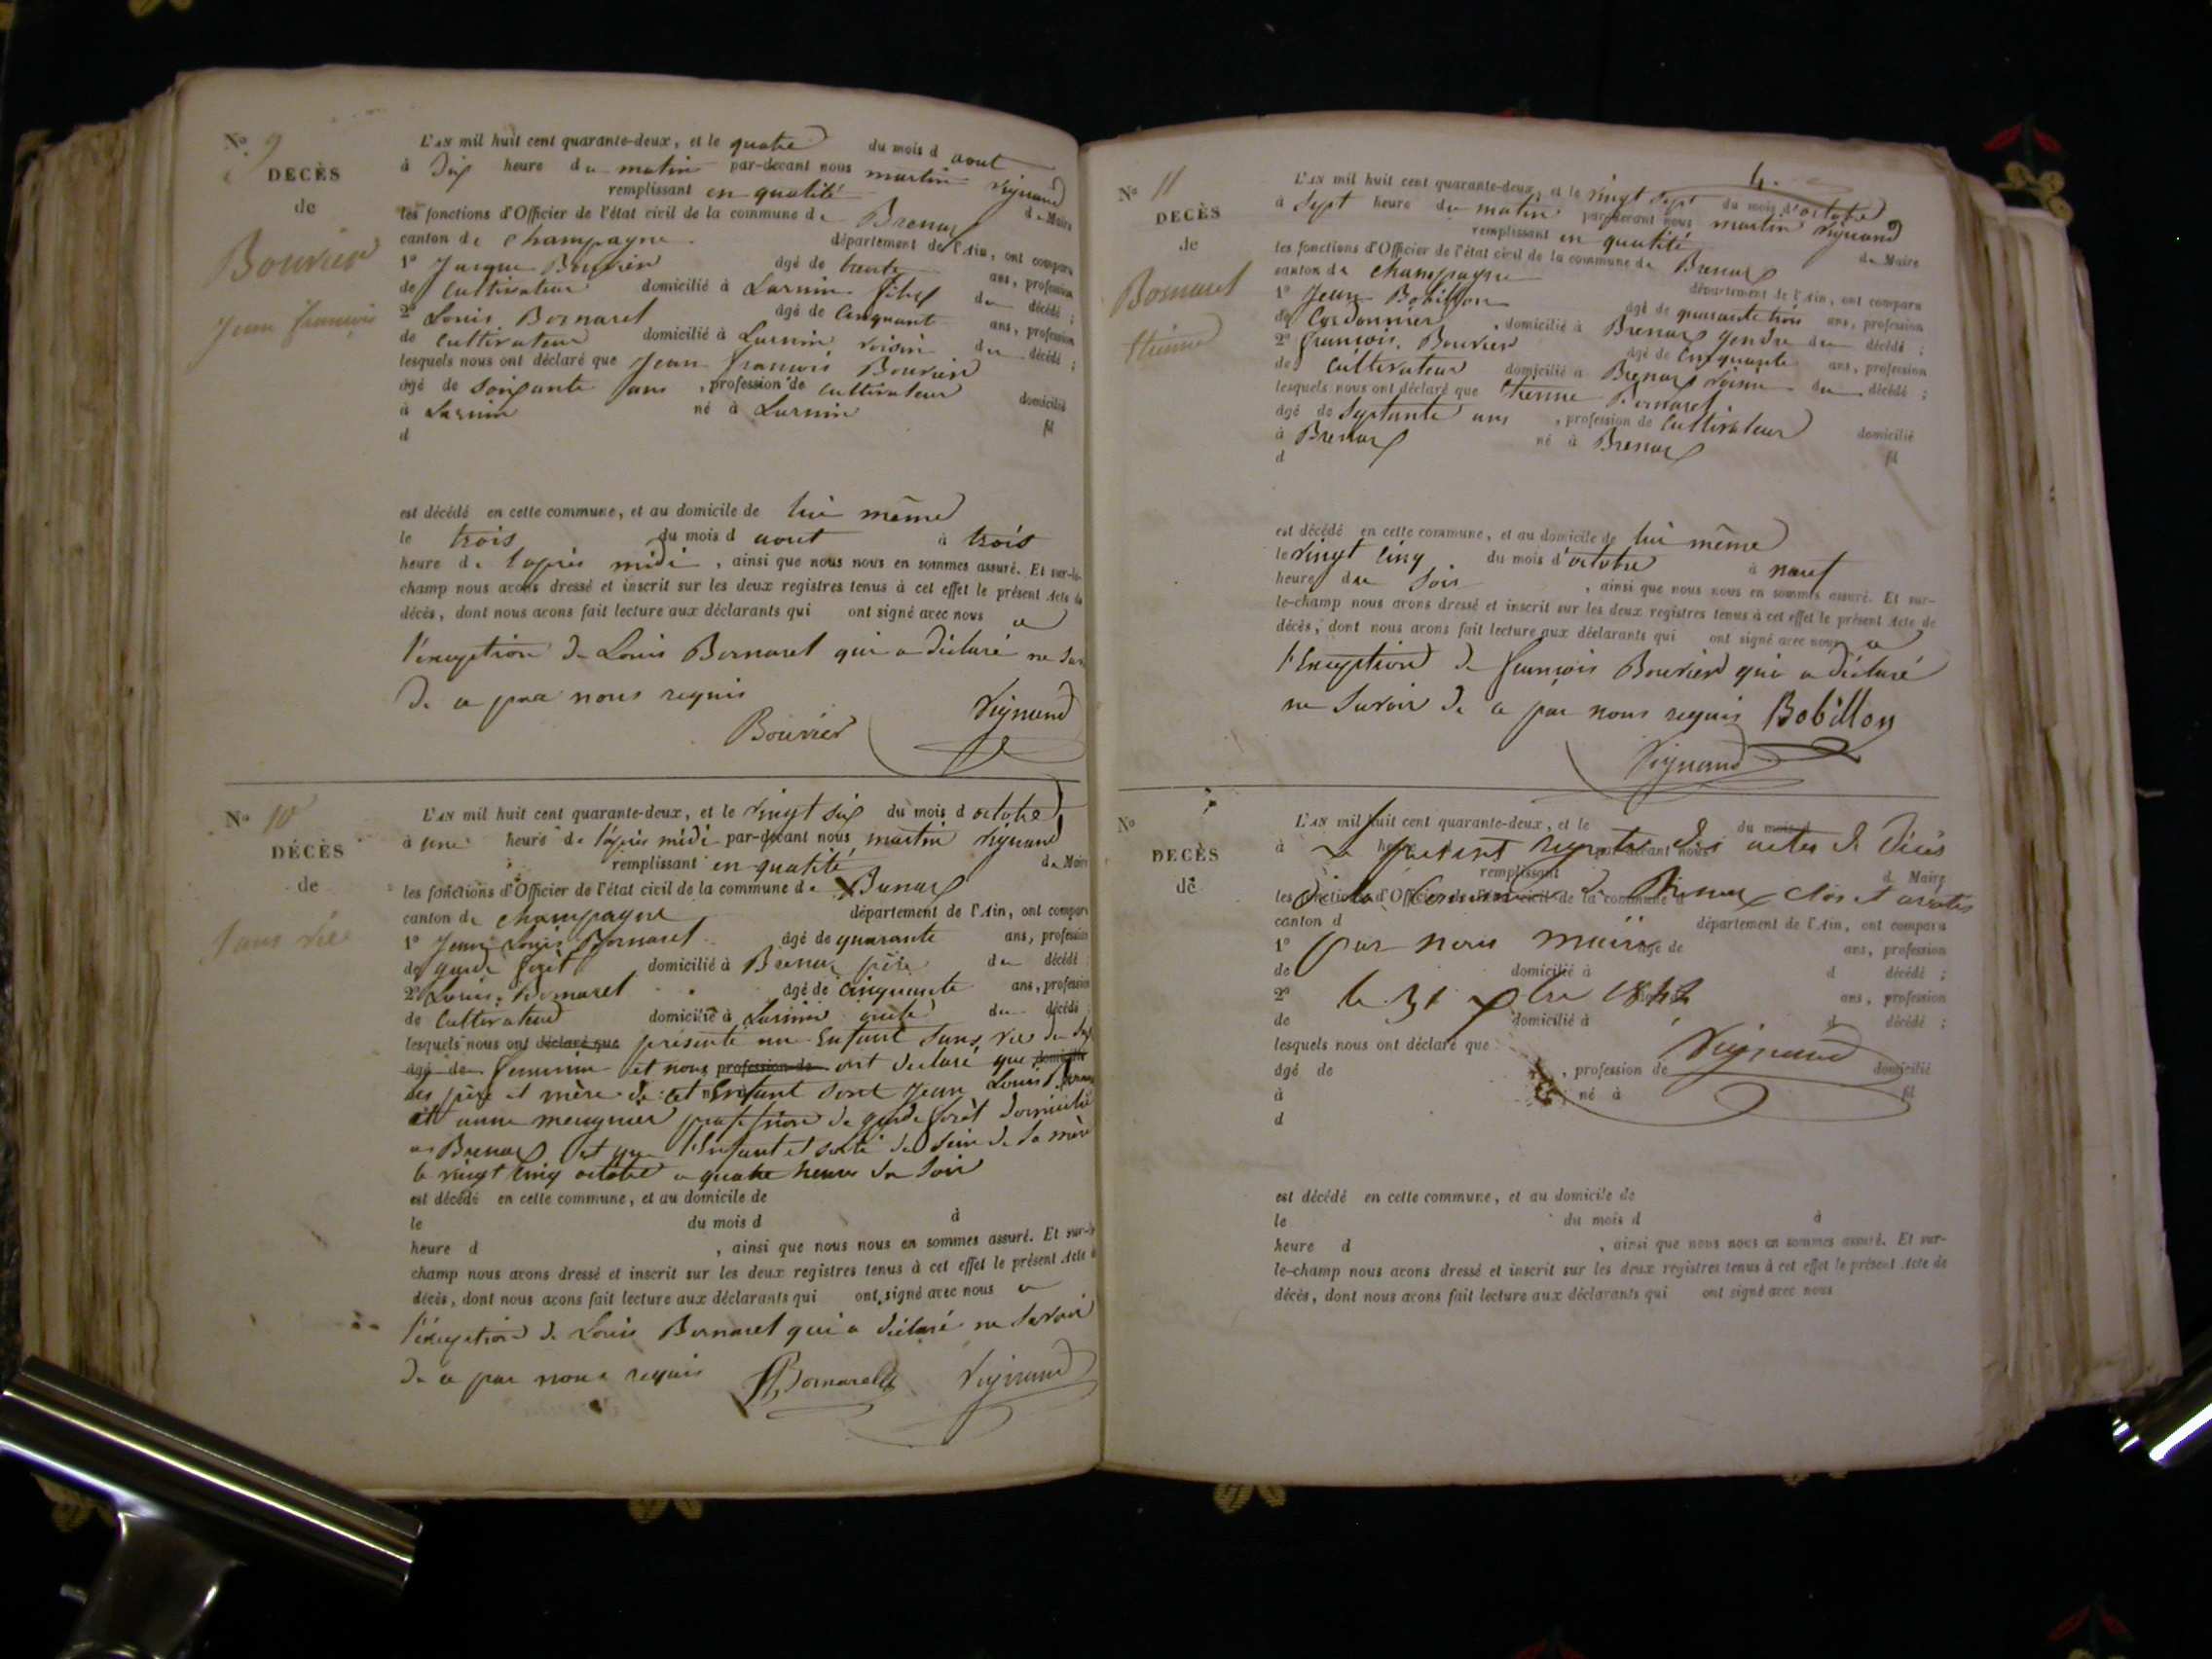 N° 9
DECÈS
de
Bouvier
Jean françois
L'AN mil huit cent quarante-deux, et le quatre du mois d aout
à Dix heure du matin par-devant nous martin Vignand
remplissant en qualité de Maire
les fonctions d'Officier de l'état civil de la commune de Brenaz
canton de Champagne département de l'Ain, ont comparu
1° Jacque Bouvier âgé de trente ans, profession
de Cultivateur domicilié à Lusnin fils du décédé ;
2° Louis Bornarel âgé de Cinquant ans, profession
de Cultivateur domicilié à Lusnin voisin du décédé ;
lesquels nous ont déclaré que Jean françois Bouvier
âgé de Soixante ans, profession de Cultivateur domicilié
à Lusnin né à Lusnin fil
d
est décédé en cette commune, et au domicile de lui même
le trois du mois d aout à trois
heure de l'après midi, ainsi que nous nous en sommes assuré. Et sur-le-
champ nous avons dressé et inscrit sur les deux registres tenus à cet effet le présent Acte de
décès, dont nous avons fait lecture aux déclarants qui ont signé avec nous a
l'exception de Louis Bornarel qui a déclaré ne
de ce par nous requis
Bouvier Vignand
N° 10
DÉCÈS
de
Sans vie
L'AN mil huit cent quarante-deux, et le vingt six du mois d octobre
à une heure de l'après midi par-devant nous martin Vignand
remplissant en qualité de Maire
les fonctions d'Officier de l'état civil de la commune de Brenaz
canton de Champagne département de l'Ain, ont comparu
1° Jean Louis Bornarel âgé de quarante ans, profession
de garde forêt domicilié à Brenaz père du décédé
2° Louis Bornarel âgé de Cinquante ans, profession
de Cultivateur domicilié à Lusnin du décédé
lesquels nous ont déclaré que présenté un Enfant sans vie du
âgé de feminin et nous profession de ont declaré que domicilié
les père et mère de cet Enfant sont Jean Louis
et anne meugnier profession de garde forêt domicilié
a Brenaz et que l'Enfant est sorti du sein de sa mère
le vingt cinq octobre a quatre heures du soir
est décédé en cette commune, et au domicile de
le du mois d à
heure d , ainsi que nous nous en sommes assuré. Et sur-le
champ nous avons dressé et inscrit sur les deux registres tenus à cet effet le présent Acte
décès, dont nous avons fait lecture aux déclarants qui ont signé avec nous a
l'exception de Louis Bornarel qui a déclaré ne Savoir
de ce par nous requis Bornarel Vignand
4.
N° 11
DECÈS
de
Bornarel
Etienne
L'AN mil huit cent quarante-deux, et le vingt sept du mois d'octobre
à Sept heure du matin par-devant nous martin Vignand
remplissant en qualité de Maire
les fonctions d'Officier de l'état civil de la commune de Brenaz
canton de Champagne département de l'Ain, ont comparu
1° Jean Bobillon âgé de quarante trois ans, profession
de Cordonnier, domicilié à Brenaz gendre du décédé ;
2° françois Bouvier âgé de Cinquante ans, profession
de Cultivateur domicilié à Brenaz voisin du décédé ;
lesquels nous ont déclaré que Etienne Bornarel
âgé de Septante ans, profession de Cultivateur domicilié
à Brenaz né à Brenaz fil
d
est décédé en cette commune, et au domicile de lui même
le vingt cinq du mois d'octobre à neuf
heure du Soir, ainsi que nous nous en sommes assuré. Et sur-
le-champ nous avons dressé et inscrit sur les deux registres tenus à cet effet le présent Acte de
décès, dont nous avons fait lecture aux déclarants qui ont signé avec nous a
l'Exception de françois Bouvier qui a déclaré
ne Savoir de ce par nous requis Bobillon
Vignand
N°
DECÈS
de
L'AN mil huit cent quarante-deux, et le du mois d
à heure par-devant nous
Le présent registre des actes de Décès
remplissant d Maire
les fonctions d'Officier de l'état civil de la commune d
de la Commune de Brenaz Clos et arrêtés
canton d département de l'Ain, ont comparu
1° âgé de ans, profession
par nous maire
de domicilié à d décédé ;
2° âgé de ans, profession
le 31 Xbre 1842
de domicilié à d décédé ;
lesquels nous ont déclaré que
Vignand
âgé de , profession de domicilié
à né à fil
d
est décédé en cette commune, et au domicile de
le du mois d à
heure d , ainsi que nous nous en sommes assuré. Et sur-
le-champ nous avons dressé et inscrit sur les deux registres tenus à cet effet le présent Acte de
décès, dont nous avons fait lecture aux déclarants qui ont signé avec nous